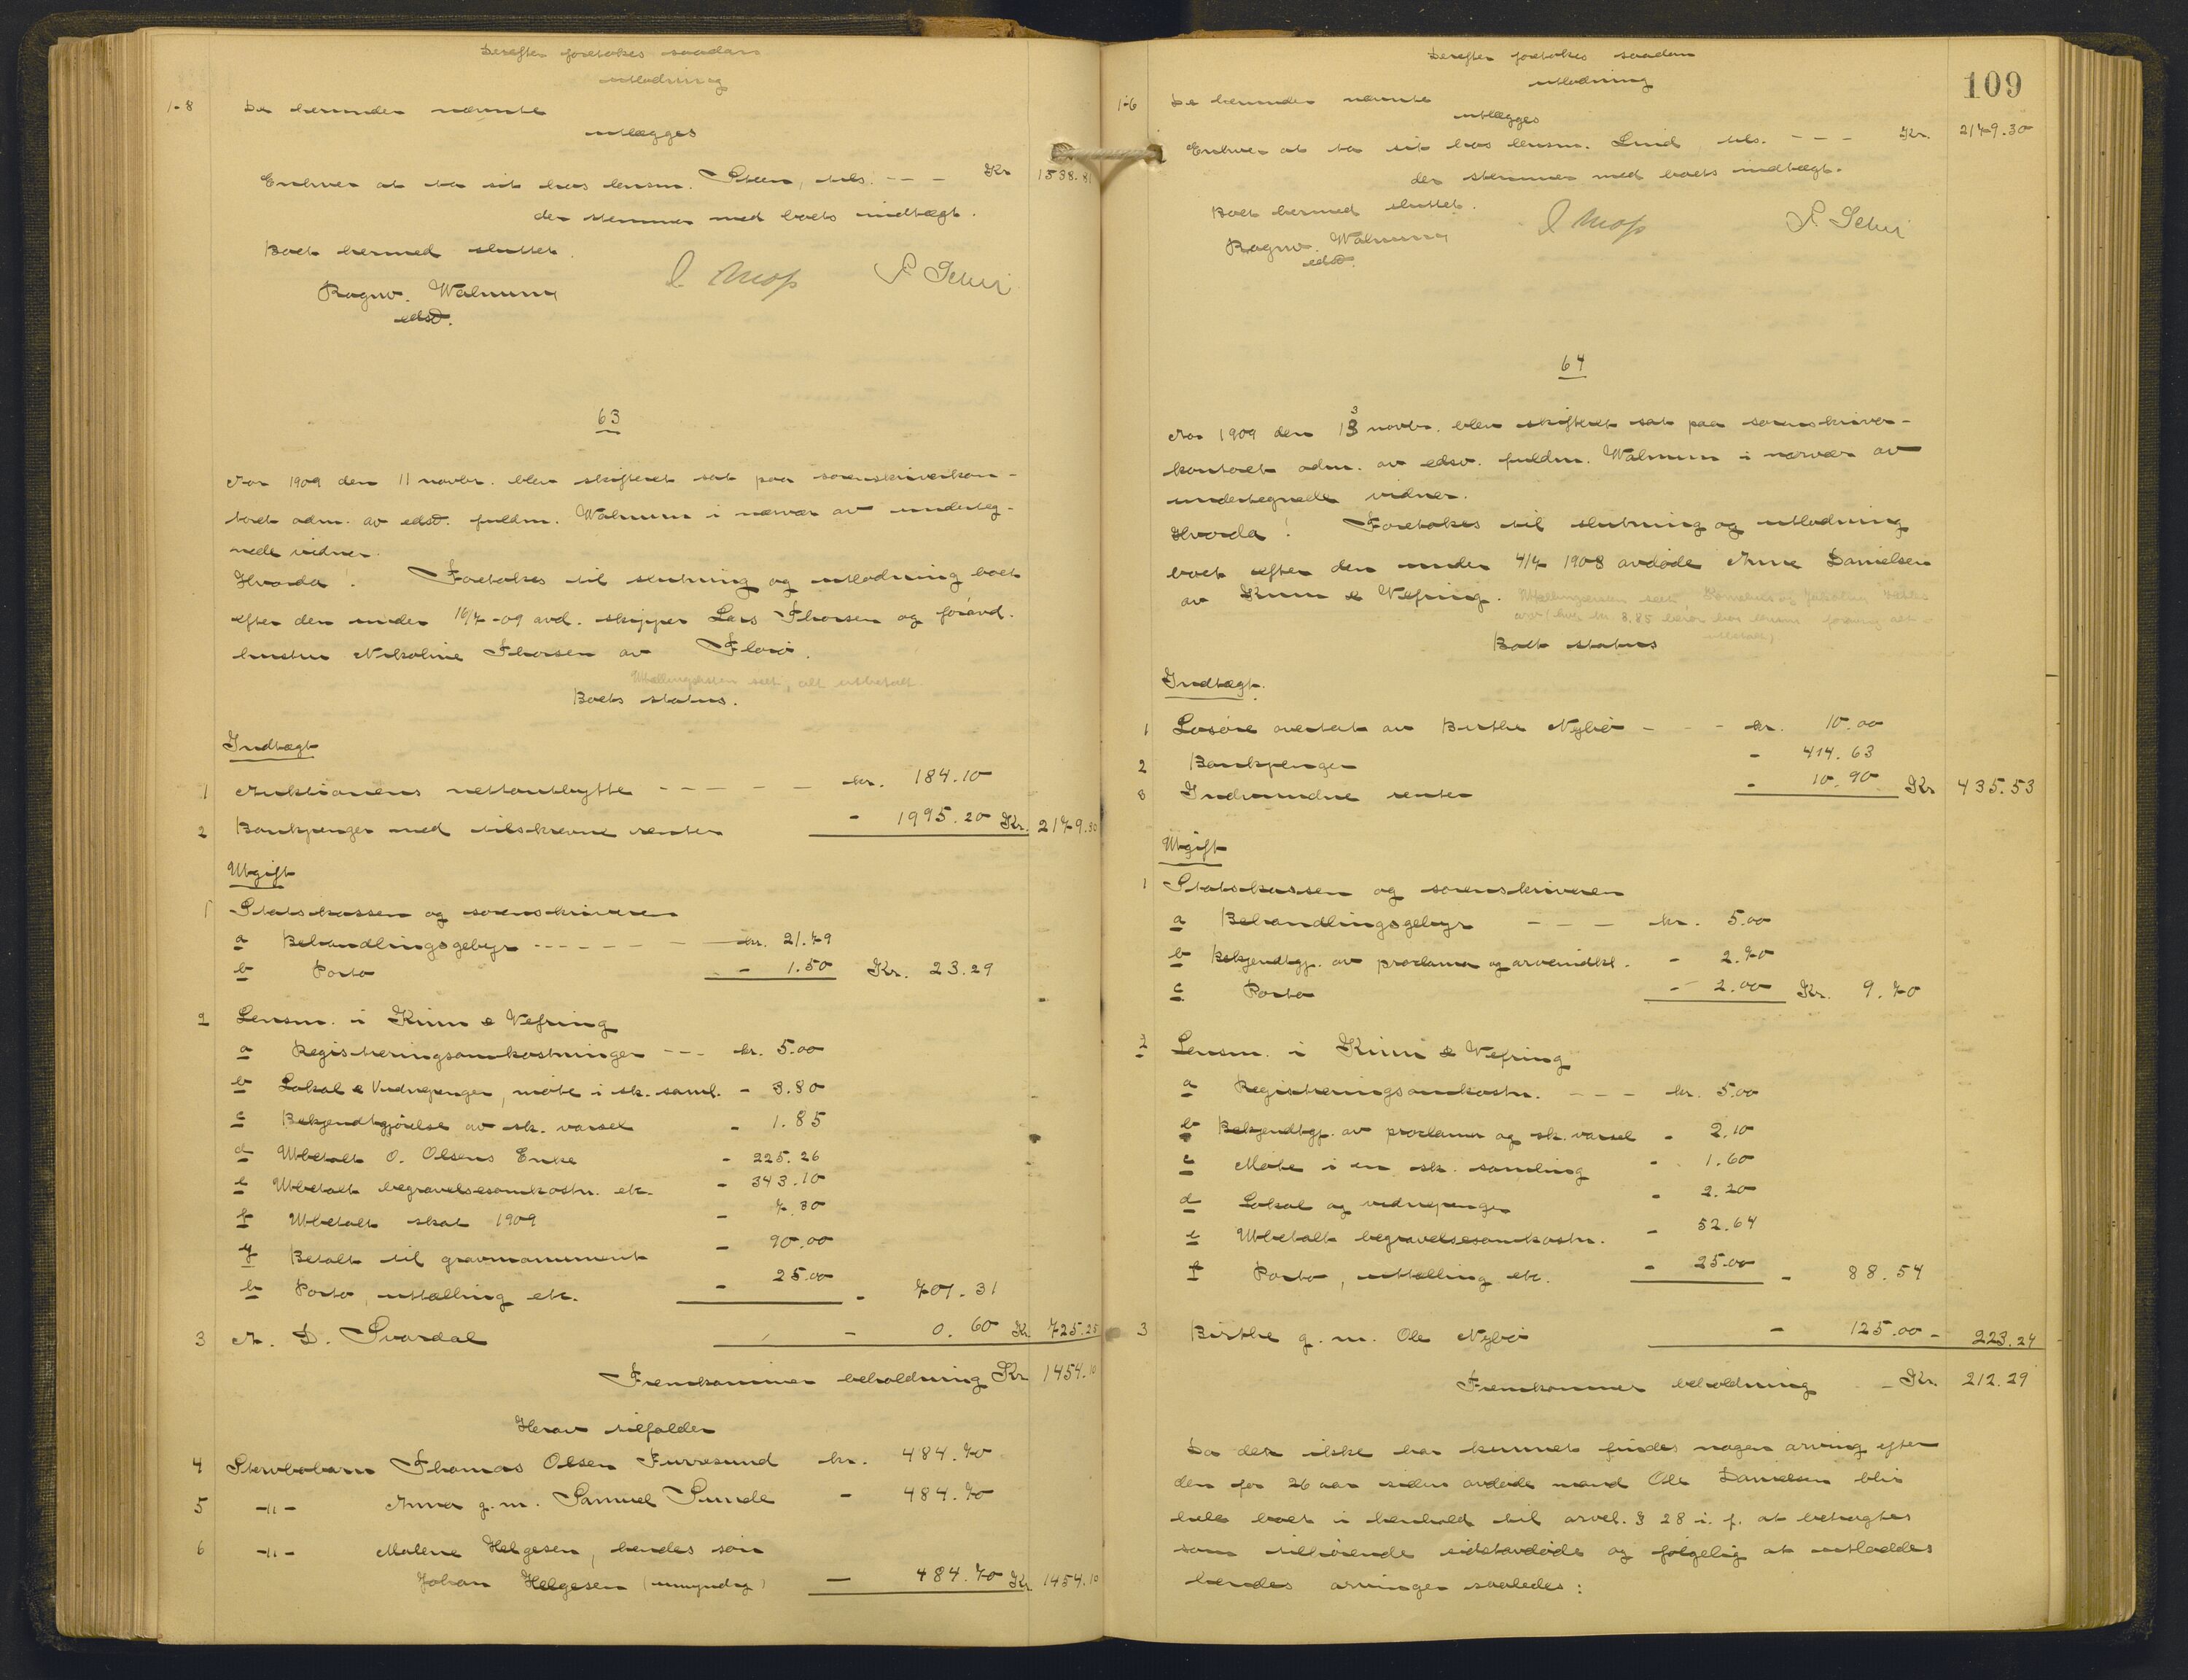 Derefter foretokes saadan
utlodning
1-8 De herunder nævnte
utlægges
Enhver at ta sit hos lensm. Steen, tils. - - - Kr 1538.81
der stemmer med boets indtægt.
Boet hermed sluttet.
Ragnv. Walnum
edsv.
63
Aar 1909 den 11 novbr. blev skifteret sat paa sorenskriverkon-
toret adm. av edsv. fuldm. Walnum i nærvær av underteg-
nede vidner.
Hvorda! Foretokes til slutning og utlodning boet
efter den under 16/7-09 avd. skipper Lars Thorsen og foravd.
hustru Nikoline Thorsen av Florø.
Utællingslisten set, alt utbetalt
Boets status.
Indtægt
1 Auktionens nettoutbytte - - - - - kr. 184.10
2 Bankpenger med tilskrevne renter - 1995.20 Kr. 2179.30
Utgift
1 Statskassen og sorenskriveren
a Behandlingsgebyr - - - - - - kr. 21.79
b Porto - 1.50 Kr. 23.29
2 Lensm. i Kinn & Vefring
a Registreringsomkostninger - - - kr. 5.00
b Lokal & Vidnepenger, møte i sk. saml. - 3.80
c Bekjendtgjørelse av sk. varsel - 1.85
d Utbetalt O. Olsens Enke - 225.26
e Utbetalt begravelsesomkostn. etc. - 343.10
f Utbetalt skat 1909 - 7.30
g Betalt til gravmonument - 90.00
h Porto, uttælling etc. - 25.00 - 701.31
3 A. D. Svardal - 0.60 Kr 725.20
Fremkommer beholdning Kr 1454.10
Herav tilfalder
4 Stervbobarn Thomas Olsen Furresund kr. 484.70
5 -"- Anna g.m. Samuel Sunde - 484.70
6 -"- Malene Helgesen, hendes søn
Johan Helgesen (umyndig) - 484.70 Kr 1454.10
109
Derefter foretokes saadan
utlodning
1-6 De herunder nævnte
utlægges
Enhver at ta sit hos lensm. Lind, tils. - - - Kr. 2179.30
der stemmer med boets indtægt.
Boet hermed sluttet.
Ragnv. Walnum
edsv.
64
Aar 1909 den 13 novbr. blev skifteret sat paa sorenskriver-
kontoret adm. av edsv. fuldm. Walnum i nærvær av
undertegnede vidner.
Hvorda! Foretokes til slutning og utlodning
boet efter den under 4/7 1908 avdøde Anne Danielsen
av Kinn & Vefring.
Boets status
Indtægt.
1 Løsøre overtat av Birthe Nybø - - - kr. 10.00
2 Bankpenger - 414.63
3 Indvundne renter - 10.90 Kr 435.53
Utgift
1 Statskassen og sorenskriveren
a Behandlingsgebyr - - - kr. 5.00
b Bekjendtgj. av proclama og arveindkl. - 2.70
c Porto - 2.00 Kr. 9.70
2 Lensm. i Kinn & Vefring
a Registreringsomkostn. - - - kr. 5.00
b Bekjendtgj. av proclama og sk. varsel - 2.10
c Møte i en sk. samling - 1.60
d Lokal og vidnepenger - 2.20
e Utbetalt begravelsesomkostn. - 52.64
f Porto, uttælling etc. - 25.00 - 88.54
3 Birthe g.m. Ole Nybø - 125.00 - 223.24
Fremkommer beholdning - Kr. 212.29
Da der ikke har kunnet findes nogen arving efter
den for 26 aar siden avdøde mand Ole Danielsen blir
hele boet i henhold til arvel. § 28 i. f. at betragtes
som tilhørende sidstavdøde og følgelig at utloddes
hendes arvinger saaledes: